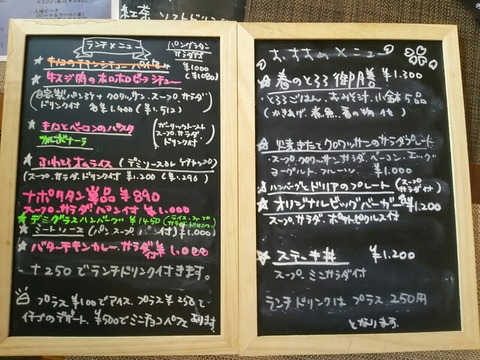 紅茶 ソフトドリンク
ランチメニュー
パン.グラタン
サラダ付
¥1000
(¥1080)
★牛スジ肉のホロホロビーフシチュー
(自家製パン.ライス or クロワッサン.スープ.サラダ
ドリンク付 ¥1.400 (¥1.512)
★きのことベーコンのパスタ
カルボナーラ
(ガーリックトースト
スープ.サラダ
ドリンク付)
★ふわとろオムライス (デミソース or ケチャップ)
(スープ.サラダ.ドリンク付 ¥1.200 (¥1.296)
ナポリタン単品 ¥890
スープ.サラダ パン付 ¥1.000
★デミグラスハンバーグ ¥1450 (ライス.スープ
サラダ.ドリンク付)
★ミートソース (パン.スープ付) ¥1.000
★バターチキンカレー.サラダ付 ¥1.000
+250でランチドリンク付きます。
プラス¥100でアイス. プラス¥250で
デザート. ¥500でミニチョコパフェ
おすすめメニュー
★春のとろろ御膳 ¥1.300
(とろろごはん.おみそ汁.小鉢5品
(かきあげ.煮魚.春の物付)
★焼きたてクロワッサンのサラダプレート
スープ.クロワッサン.サラダ.ベーコン.エッグ
ヨーグルト.フルーツ. ¥1.000
★ハンバーグとドリアのプレート (スープ
サラダ付)
★オリジナルビッグバーガー ¥1.200
スープ.サラダ ポテト.ピクルス付
★ステーキ丼 ¥1.200
スープ.ミニサラダ付
ランチドリンクは プラス 250円
となります.